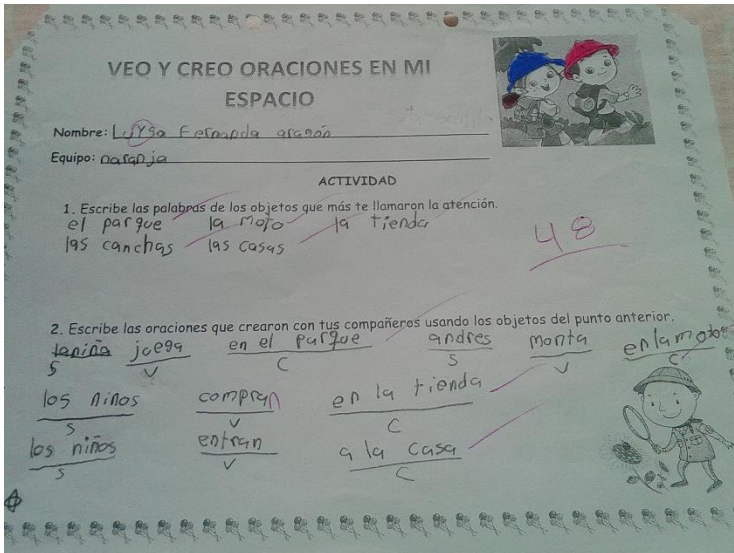 VEO Y CREO ORACIONES EN MI
ESPACIO
Nombre: Luysa Fernanda aragón
Equipo: naranja
ACTIVIDAD
1. Escribe las palabras de los objetos que más te llamaron la atención.
el parque la moto la tienda
las canchas las casas
48
2. Escribe las oraciones que crearon con tus compañeros usando los objetos del punto anterior.
la niña juega en el parque andres monta en la moto
S V C S V C
los niños compran en la tienda
S V C
los niños entran a la casa
S V C